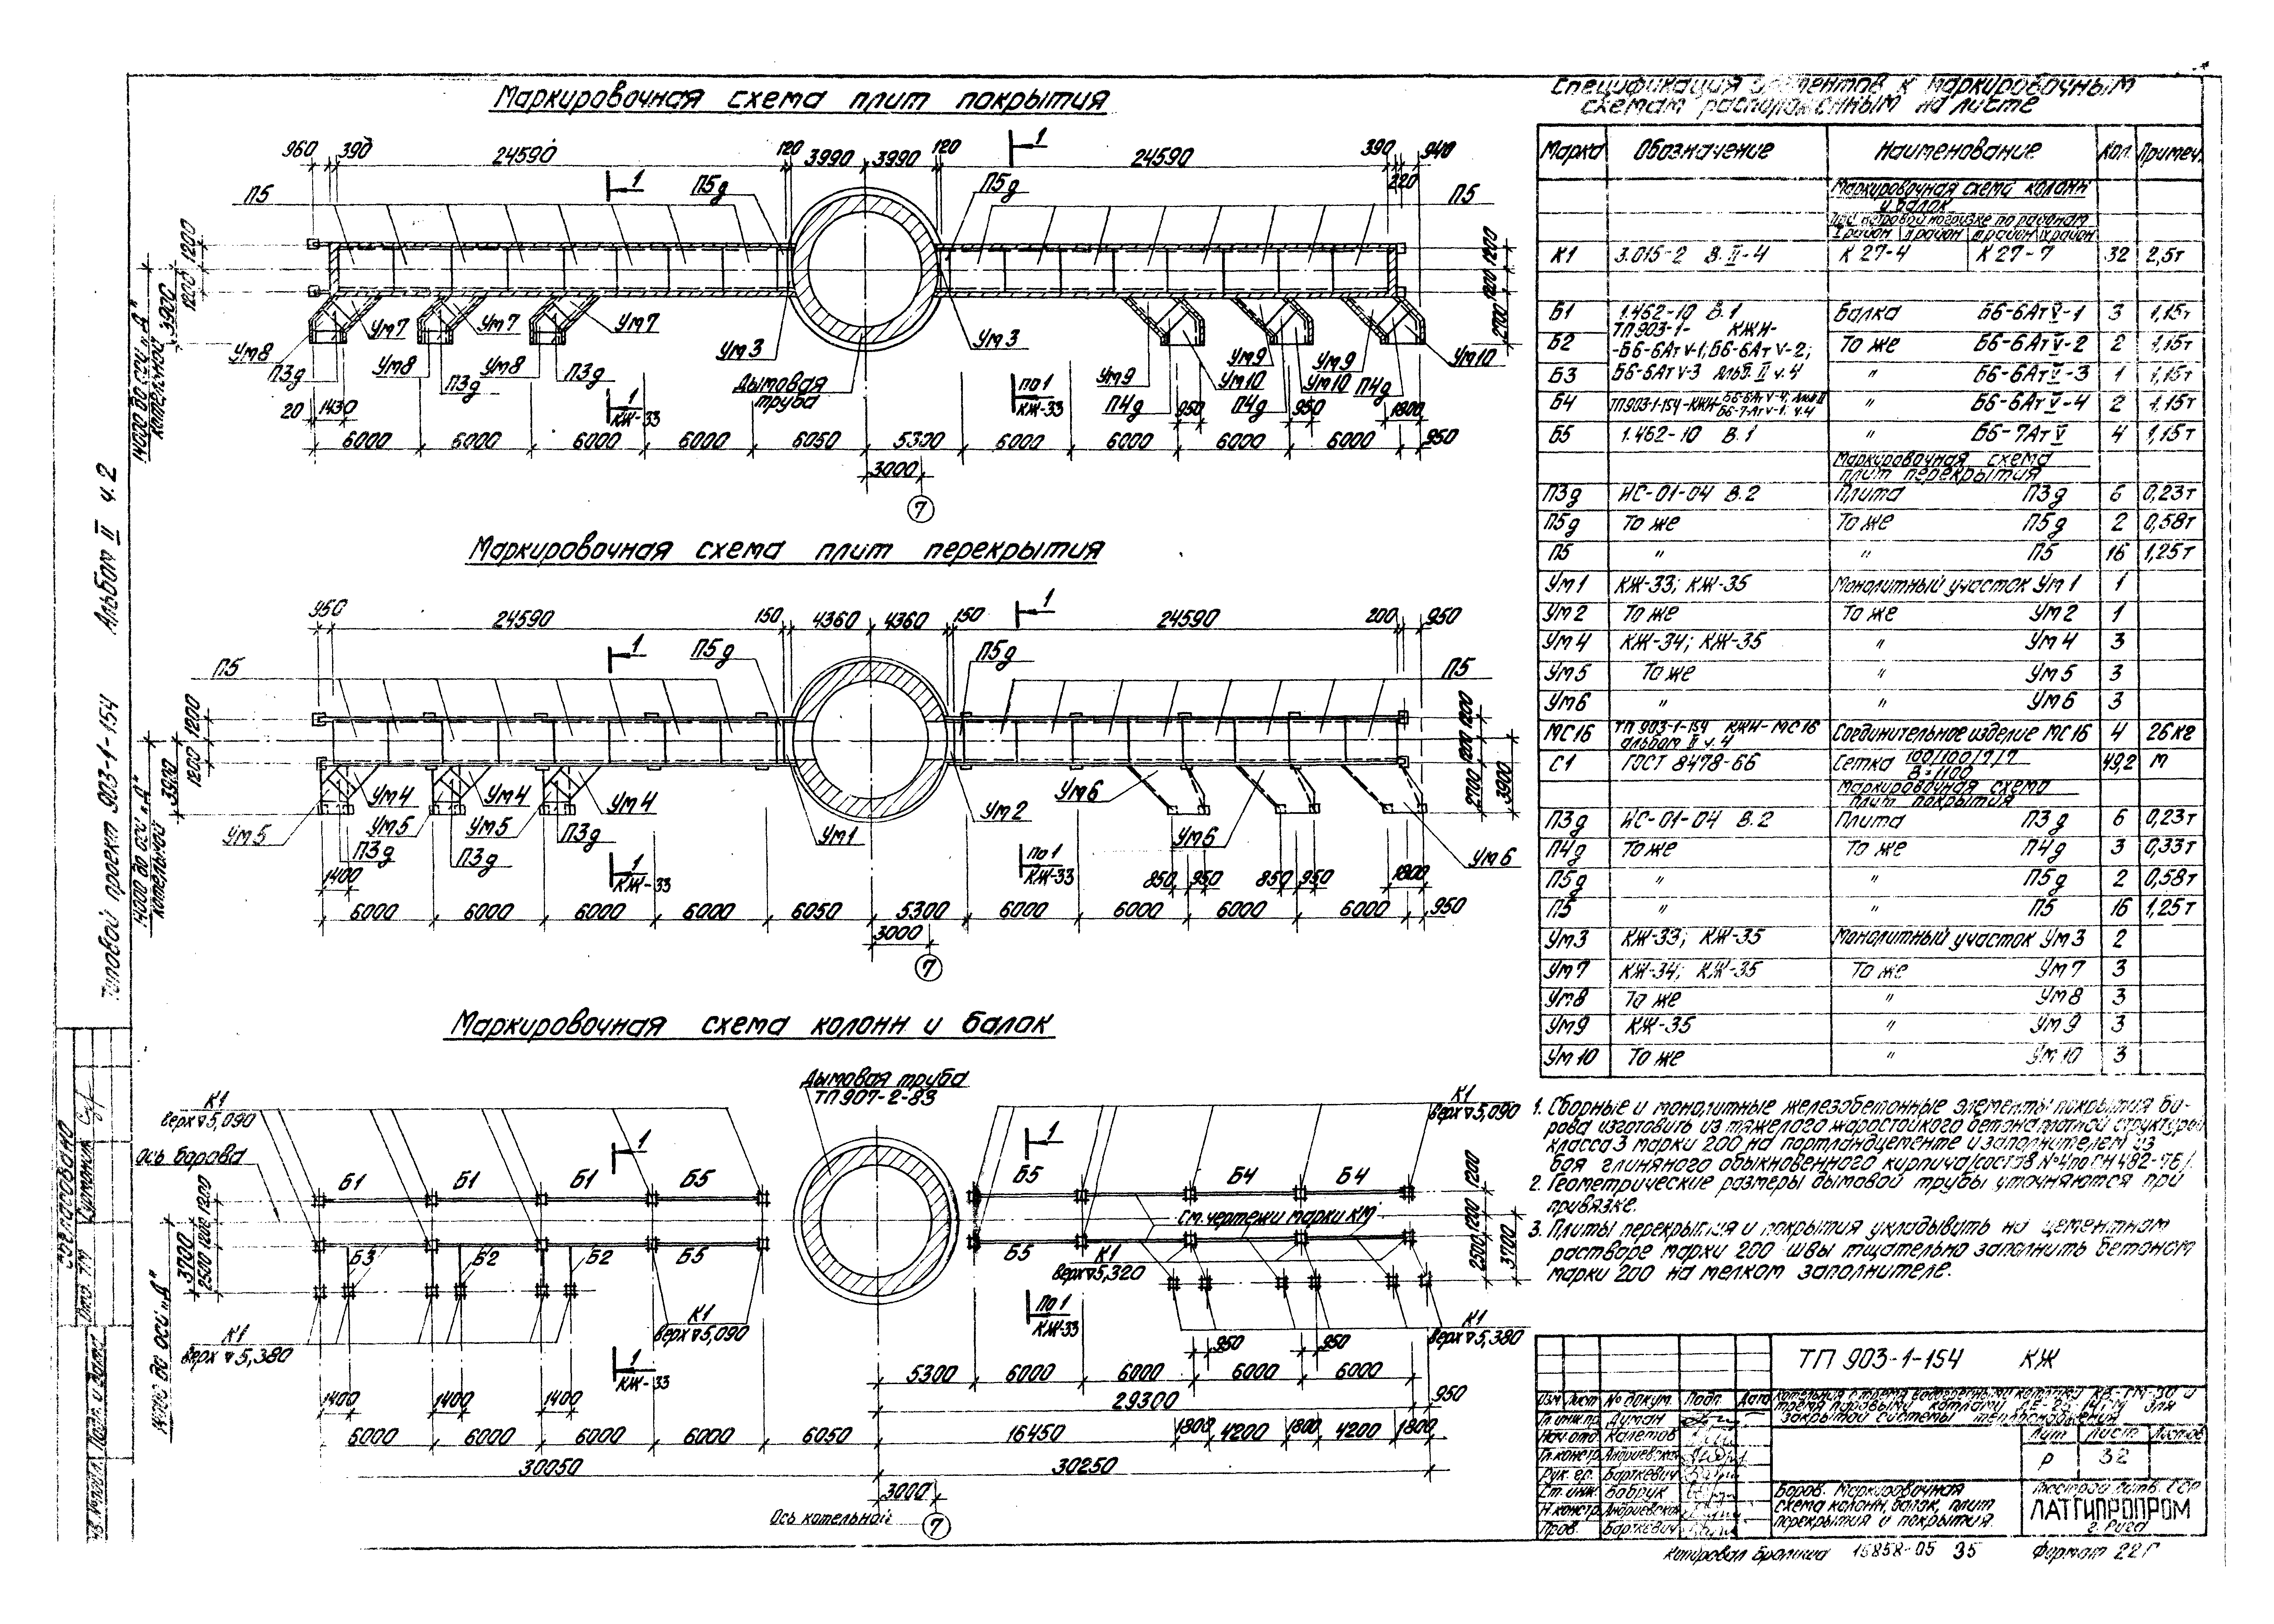 Маркировочная схема плит покрытия
960 390 24590 120 3990 3990 120 1 24590 390 940
220
П5 1 П5д П5д П5
1200
1200
3900
14000 до оси „Д"
котельной
1200
1200
2700
Ум7 Ум7 Ум7
Ум8 Ум8 Ум8
П3д П3д П3д
Ум3 Ум3
Дымовая
труба
Ум9 Ум9 Ум9 Ум10
Ум10 Ум10
П4д П4д П4д
20 1430
1
КЖ-33
по 1
КЖ-33
950 950 1800
6000 6000 6000 6000 6050 5300 6000 6000 6000 6000 950
3000
7
Маркировочная схема плит перекрытия
950 24590 150 4360 4360 150 1 24590 200 950
П5 1 П5д П5д П5
1200
1200
3900
14000 до оси „Д"
котельной
1200
1200
2700
3900
Ум4 Ум4 Ум4
Ум5 Ум5 Ум5
П3д П3д П3д
Ум1 Ум2
Ум6 Ум6 Ум6
1400
1
КЖ-33
по 1
КЖ-33
850 950 850 950 1800
6000 6000 6000 6000 6050 5300 6000 6000 6000 6000 950
3000
7
Маркировочная схема колонн и балок
Дымовая труба
ТП 907-2-83
К1
верх 5,090
К1
верх 5,090
Ось борова
1 1
Б1 Б1 Б1 Б5 Б5 Б4 Б4
см. чертежи марки КМ
Б3 Б2 Б2 Б5 Б5
К1
верх 5,320
1200
1200
2500
3700
14000 до оси „Д"
1200
1200
2500
3700
К1
верх 5,380
К1
верх 5,090
К1
верх 5,380
1
КЖ-33
По 1
КЖ-33
950 950
5300 6000 6000 6000 6000
1400 1400 1400
29300 950
6000 6000 6000 6000 6050 16450 1800 4200 1800 4200 1800
30050 30250
3000
Ось котельной 7
Типовой проект 903-1-154 Альбом II ч.2
Согласовано
Подп. и дата
Спецификация элементов к маркировочным
схемам расположенным на листе
Марка Обозначение Наименование Кол. Примеч.
Маркировочная схема колонн
и балок
При ветровой нагрузке по районам
I район II район III район IV район
К1 3.015-2 В.II-4 К 27-4 К 27-7 32 2,5т
Б1 1.462-10 В.1 Балка Б6-6АтV-1 3 1,15т
Б2 ТП903-1- КЖИ-
-Б6-6АтV-1; Б6-6АтV-2; То же Б6-6АтV-2 2 1,15т
Б3 Б6-6АтV-3 Альб. II ч.4 " Б6-6АтV-3 1 1,15т
Б4 ТП903-1-154-КЖИ-Б6-6АтV-4; Альб II Б6-7-АтV-1; ч.4 " Б6-6АтV-4 2 1,15т
Б5 1.462-10 В.1 " Б6-7АтV 4 1,15т
Маркировочная схема
плит перекрытия
П3д ИС-01-04 В.2 Плита П3д 6 0,23т
П5д То же То же П5д 2 0,58т
П5 " " П5 16 1,25т
Ум1 КЖ-33; КЖ-35 Монолитный участок Ум1 1
Ум2 То же То же Ум2 1
Ум4 КЖ-34; КЖ-35 " Ум4 3
Ум5 То же " Ум5 3
Ум6 " " Ум6 3
МС16 ТП 903-1-154 КЖИ-МС16
альбом II ч.4 Соединительное изделие МС16 4 26кг
С1 ГОСТ 8478-66 Сетка 100/100/7/7
В=1100 49,2 м
Маркировочная схема
плит покрытия
П3д ИС-01-04 В.2 Плита П3д 6 0,23т
П4д То же То же П4д 3 0,33т
П5д " " П5д 2 0,58т
П5 " " П5 16 1,25т
Ум3 КЖ-33; КЖ-35 Монолитный участок Ум3 2
Ум7 КЖ-34; КЖ-35 То же Ум7 3
Ум8 То же " Ум8 3
Ум9 КЖ-35 " Ум9 3
Ум10 То же " Ум10 3
1. Сборные и монолитные железобетонные элементы покрытия бо-
рова изготовить из тяжелого жаростойкого бетона плотной структуры
класса 3 марки 200 на портландцементе и заполнителем из
боя глиняного обыкновенного кирпича/состав №4 по СН 482-76/.
2. Геометрические размеры дымовой трубы уточняются при
привязке.
3. Плиты перекрытия и покрытия укладывать на цементном
растворе марки 200 швы тщательно заполнить бетоном
марки 200 на мелком заполнителе.
ТП 903-1-154 КЖ
Изм Лист № докум. Подп. Дата
Котельная с тремя водогрейными котлами КВ-ГМ-50 и
тремя паровыми котлами ДЕ-25-14ГМ для
закрытой системы теплоснабжения
Гл.инж.пр. Думан
Нач.отд. Калетов
Гл.констр.
Рук. гр. Барткевич
Ст. инж. Бобрук
Н.констр.
Пров. Барткевич
Лит Лист Листов
Р 32
Боров. Маркировочная
схема колонн, балок, плит
перекрытия и покрытия.
Госстрой Латв. ССР
ЛАТГИПРОПРОМ
г. Рига
Копировал 15858-05 35 Формат 22Г